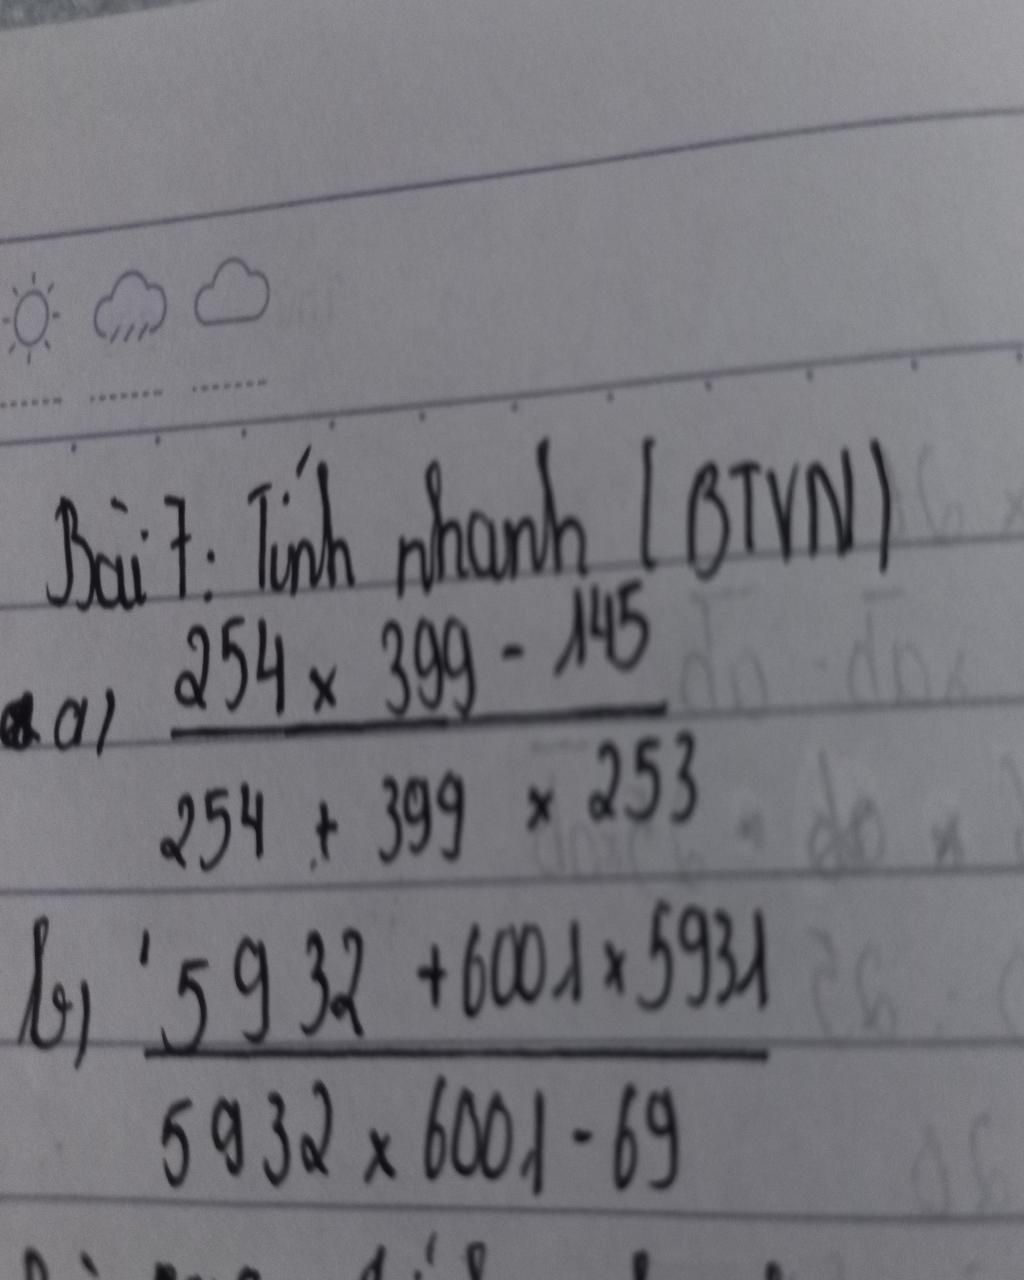 Bài 7: Tính nhanh (BTVN)
a) 254 x 399 - 145
254 + 399 x 253
b) 5932 + 6001 x 5931
5932 x 6001 - 69